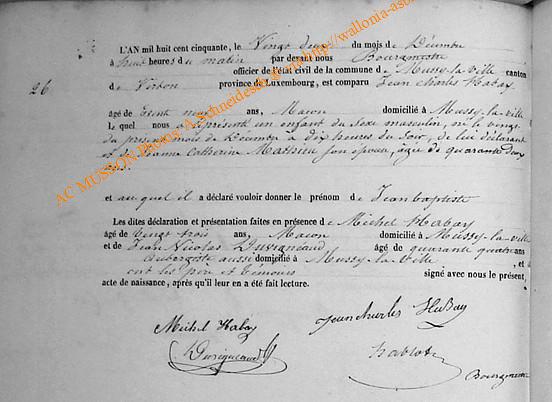 L'AN mil huit cent cinquante, le Vingt deux du mois de Décembre
à huit heures du matin par devant nous Bourgmestre
officier de l'état civil de la commune de Mussy-la-ville canton
26 de Virton province de Luxembourg, est comparu Jean Charles Habay
âgé de trente neuf ans, Macon domicilié à Mussy-la-ville
Le quel nous a présenté un enfant du sexe masculin, né le vingt
du présent mois de Décembre à dix heures du soir, de lui déclarant
et de Jeanne Catherine Mathieu son épouse, âgée de quarante deux
ans.
et auquel il a déclaré vouloir donner le prénom de Jean baptiste
Les dites déclaration et présentation faites en présence de Michel Habay
âgé de vingt trois ans, Macon domicilié à Mussy-la-ville
et de Jean Nicolas Duvigneaud âgé de quarante quatre ans
aubergiste aussi domicilié à Mussy la ville, et
ont les père et témoins signé avec nous le présent,
acte de naissance, après qu'il leur en a été fait lecture.
Michel Habay
Jean Charles Habay
Duvigneaud
Bourgmestre
AC MUSSON Photos A.Schneidesch http://wallonia-aso